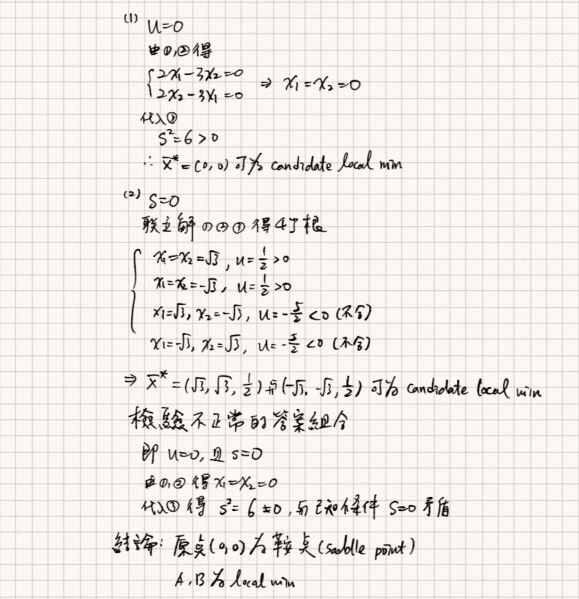 (1) u=0
由①,②得
{2x₁-3x₂=0
{2x₂-3x₁=0 ⇒ x₁=x₂=0
代入③
S²=6>0
∴ x̄*=(0,0) 可為 candidate local min
(2) S=0
聯立解①②③得4個根
x₁=x₂=√3, u=1/2>0
x₁=x₂=-√3, u=1/2>0
x₁=√3, x₂=-√3, u=-5/2<0 (不合)
x₁=-√3, x₂=√3, u=-5/2<0 (不合)
⇒ x̄*=(√3, √3, 1/2)與(-√3, -√3, 1/2) 可為 candidate local min
檢驗不正常的答案組合
即 u=0, 且 s=0
由①,②得 x₁=x₂=0
代入③得 s²=6≠0, 與已知條件 S=0 矛盾
結論: 原點(0,0)為鞍點(saddle point)
A,B為local min